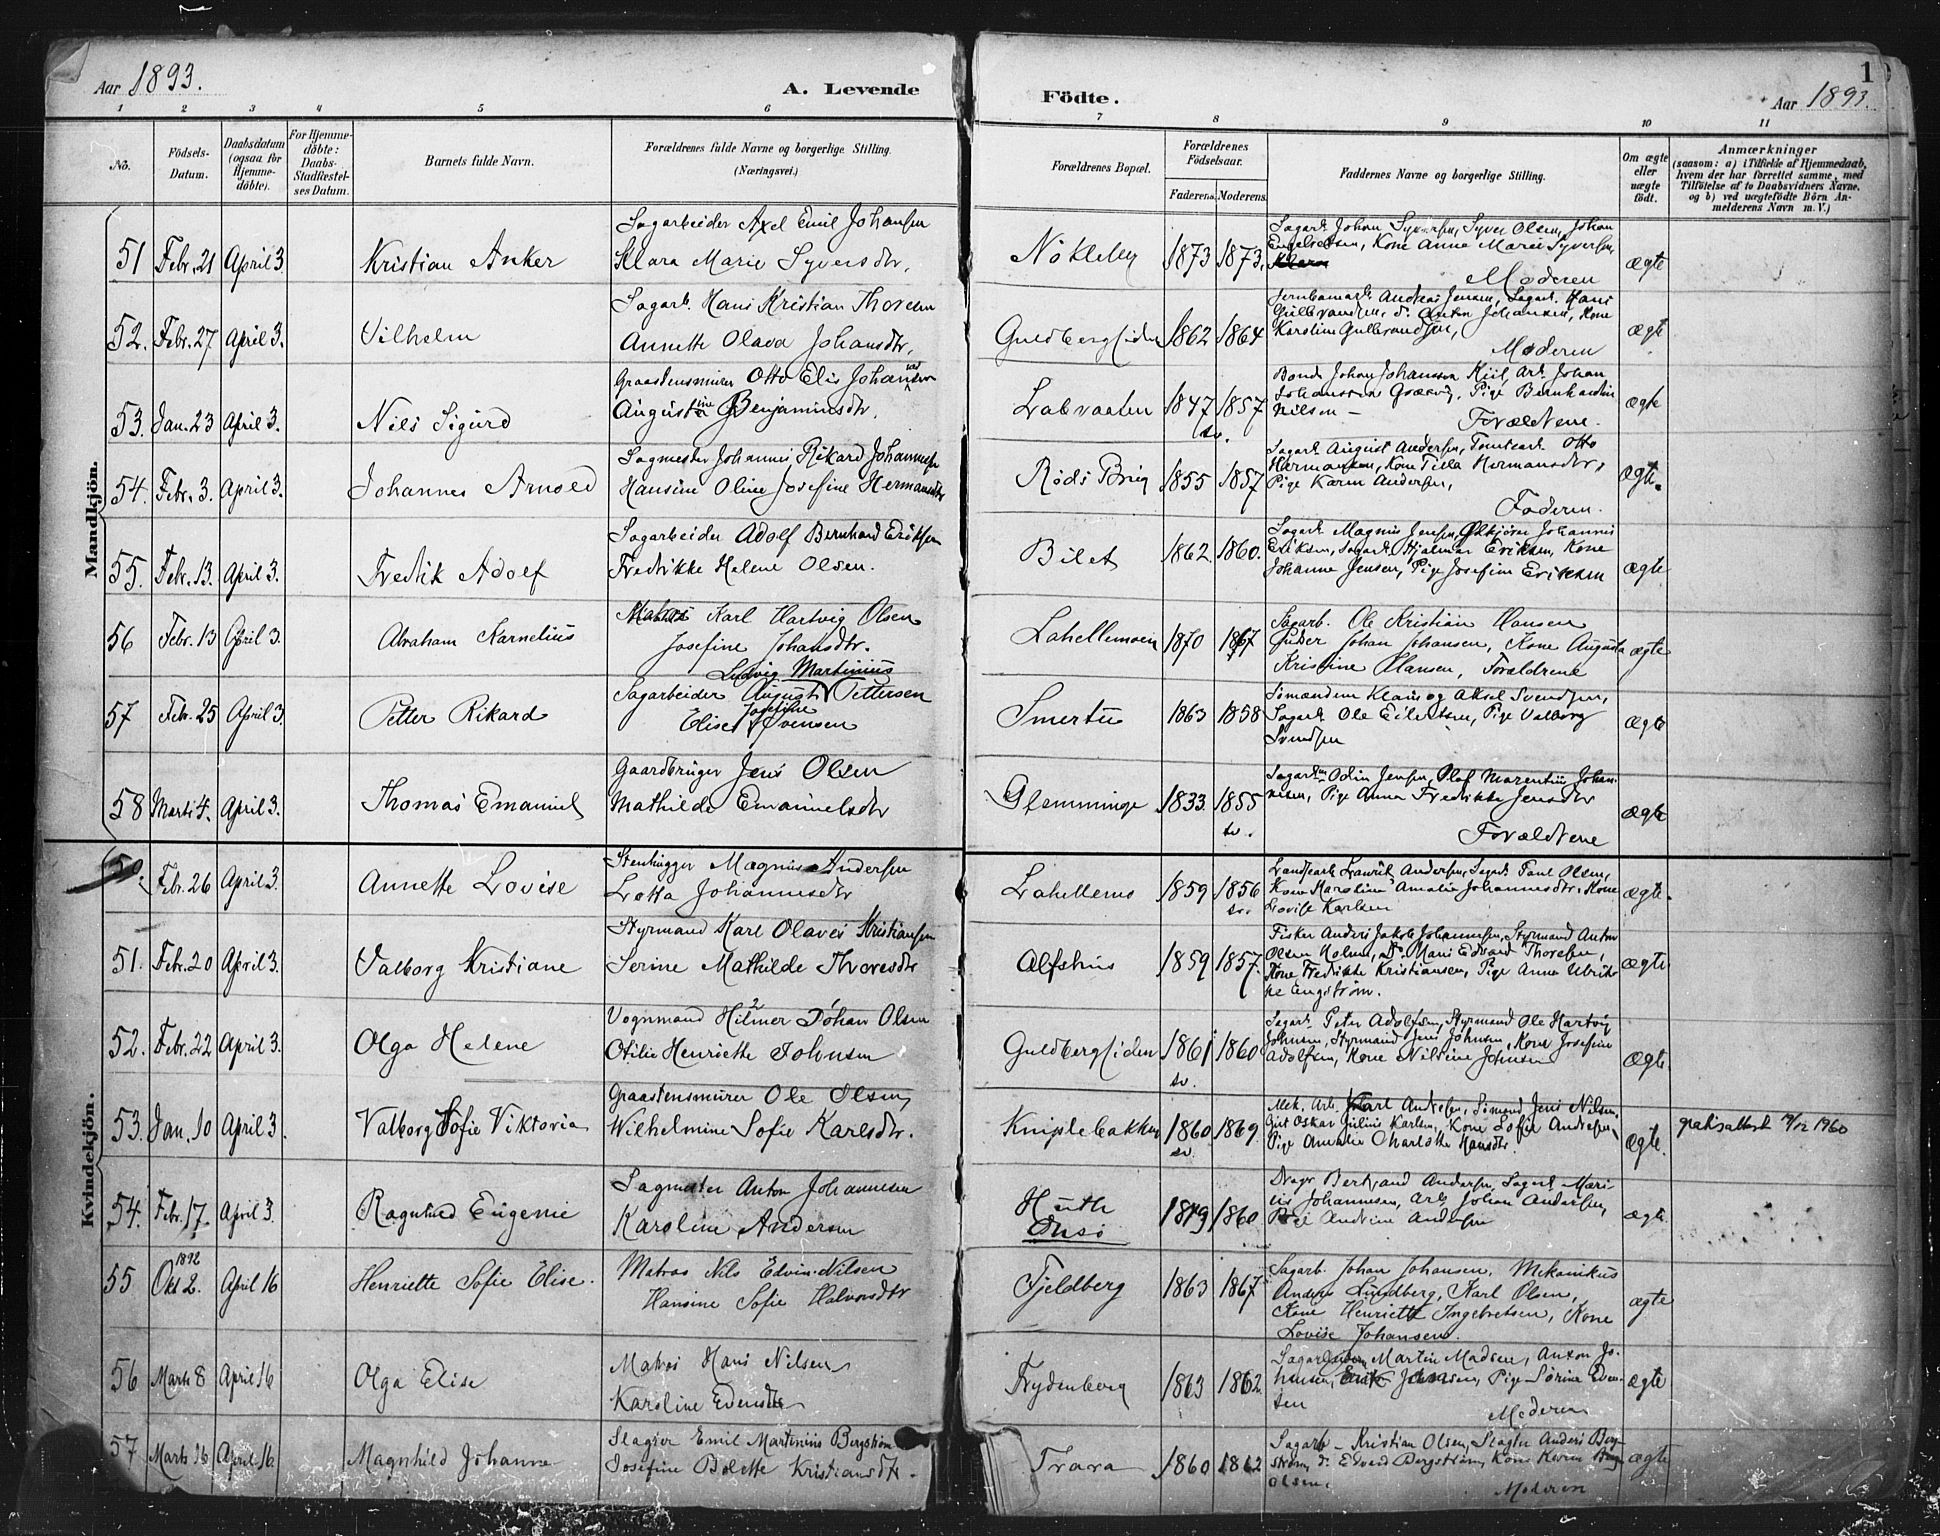 Aar 1893.
A. Levende
Födte.
1
Aar 1893.
1 2 3 4 5 6 7 8 9 10 11
No.
Födsels-Datum.
Daabsdatum (ogsaa for Hjemme-döbte).
For Hjemme-döbte: Daabs-Stadfæstel-ses Datum.
Barnets fulde Navn.
Forældrenes fulde Navne og borgerlige Stilling. (Næringsvei.)
Forældrenes Bopæl.
Forældrenes Födselsaar.
Faderens. Moderens.
Faddernes Navne og borgerlige Stilling.
Om ægte eller uægte födt.
Anmærkninger
(saasom: a) i Tilfælde af Hjemmedaab, hvem der har forrettet samme, med Tilföielse af to Daabsvidners Navne, og b) ved uægtefödte Börn An-melderens Navn m. V.)
Mandkjön.
51 Febr. 21 April 3. Kristian Anker
Sagarbeider Axel Emil Johansen
Klara Marie Syversdtr.
Nökleby 1873 1873.
Sagarb. Johan Syversen, Syver Olsen, Johan
Engebretsen, Kone Anna Marie Syversen,
Moderen
ægte
52. Febr. 27 April 3. Vilhelm
Sagarb. Hans Kristian Thoresen
Annette Olava Johansdtr.
Guldbergsiden 1862 1864
Jernbanearb. Andreas Jensen, Sagarb. Hans
Gulbrandsen, do. Anton Johansen, Kone
Karoline Gulbrandsen,
Moderen
ægte
53. Jan. 23 April 3. Niels Sigurd
Graastensmurer Otto Elis Johansson
Augustine Benjaminsdtr.
Labraaten 1847 sv. 1857
Bonde Johan Johansson Kiil, Arb. Johan
Johansson, Pige Bernhardine
Nilsen –
Forældrene.
ægte
54. Febr. 3. April 3. Johannes Arnold
Sagmester Johannes Rikard Johannesen
Hansine Oline Josefine Hermansdtr
Röds Brug 1855 1857
Sagarb. August Andersen, Tomtearb. Otto
Hermansen, Kone Tilla Hermansdtr,
Pige Karen Andersen,
Faderen.
Ægte.
55. Febr. 13. April 3. Fredrik Adolf
Sagarbeider Adolf Bernhard Eriksen
Fredrikke Helene Olsen.
Bilet 1862 1860.
Sagarb. Magnus Jensen, Johannes
Eriksen, Sagarb. Hjalmar Eriksen, Kone
Johanne Jensen, Pige Josefine Eriksen
ægte
56 Febr. 13 April 3. Abraham Karnelius
Matros Karl Hartvig Olsen
Josefine Johansdtr.
Lahellemoen 1870 1867
Sagarb. Ole Kristian Hansen
Johan Johansen, Kone Augusta
Kristine Hansen, Forældrene
ægte
57 Febr. 25 April 3. Petter Rikard
Ludvig Martinius
Sagarbeider August Pettersen
Josefine
Elise Joensen
Smertu 1863 1858
Sömændene Klaus og Aksel Svendsen,
Sagarb. Ole Eilertsen, Pige Valborg
Svendsen
ægte
58 Marts 4. April 3. Thomas Emanuel
Gaardbruger Jens Olsen
Mathilde Emanuelsdtr
Glemminge 1833 1855 sv.
Sagarb. Odin Jensen, Olaf Marentius Johan-
nesen, Pige Anna Fredrikke Jensdtr
Forældrene
ægte
Kvindekjön.
50. Febr. 26 April 3. Annette Lovise
Stenhugger Magnus Andersen
Lotta Johannesdtr
Lahellems 1859 1856 sv.
Laurits Andersen, Sagarb. Paul Olsen,
Kone Karoline Amalie Johannesdtr, Kone
Lovise Karlsen
ægte.
51. Febr. 20 April 3. Valborg Kristiane
Styrmand Karl Olaves Kristiansen
Serine Mathilde Thoresdtr
Alfshus 1859 1857.
Fisker Anders Jakob Johannesen, Styrmand Anton
Olsen Holm, Do. Hans Edvard Thoresen,
Kone Fredrikke Kristiansen, Pige Anna Ulrik-
ke Engström.
ægte
52. Febr. 22 April 3. Olga Helene
Vognmand Hilmer Johan Olsen
Otilie Henriette Johnsen
Guldbergsiden 1861 sv. 1860
Sagarb. Peter Adolfsen, Styrmand Ole Hartvig
Johnsen, Styrmand Jens Johnsen, Kone Josefine
Adolfsen, Kone Nilsine Johnsen
ægte.
53. Jan. 10 April 3. Valborg Sofie Viktoria
Graastensmurer Ole Olsen
Wilhelmine Sofie Karlsdtr.
Kniplebakken 1860 sv. 1869.
Mek. Arb. Karl Andresen, Sömand Jens Nilsen,
Gut Oskar Julius Karlsen, Kone Sofie Andresen,
Pige Amalie Charlotte Hansdtr.
ægte.
gratisattest 19/12 1960
54. Febr. 17. April 3. Ragnhild Eugenie
Sagmester Anton Johannesen
Karoline Andersen
Huth
Onsö
1849 1860
Bertrand Andersen, Sagarb. Mari-
us Johannesen, Arb. Johan Andersen,
Pige Andrine Andersen
ægte.
55 1892 Okt 2. April 16 Henriette Sofie Elise.
Matros Nils Edvin Nilsen
Hansine Sofie Halvorsdtr
Fjeldberg 1863 1867
Sagarb. Johan Johansen, Mekanikus
Anders Lundberg, Karl Olsen,
Kone Henriette Ingebretsen, Kone
Lovise Johansen.
ægte
56 Marts 8 April 16 Olga Elise
Matros Hans Nilsen
Karoline Evensdtr
Frydenberg 1863 1862.
Martin Madsen, Anton Jo-
hansen, Erik Jensen, Pige Sörine Even-
sen
Moderen
ægte
57 Marts 16 April 16 Magnhild Johanne
Slagter Emil Martinius Bergström
Josefine Bolette Kristiansdtr.
Trara 1860 1862
Sagarb – Kristian Olsen, Slagter Anders Berg-
ström, do. Edvard Bergström, Kone Karen
Olsen.
Moderen
ægte